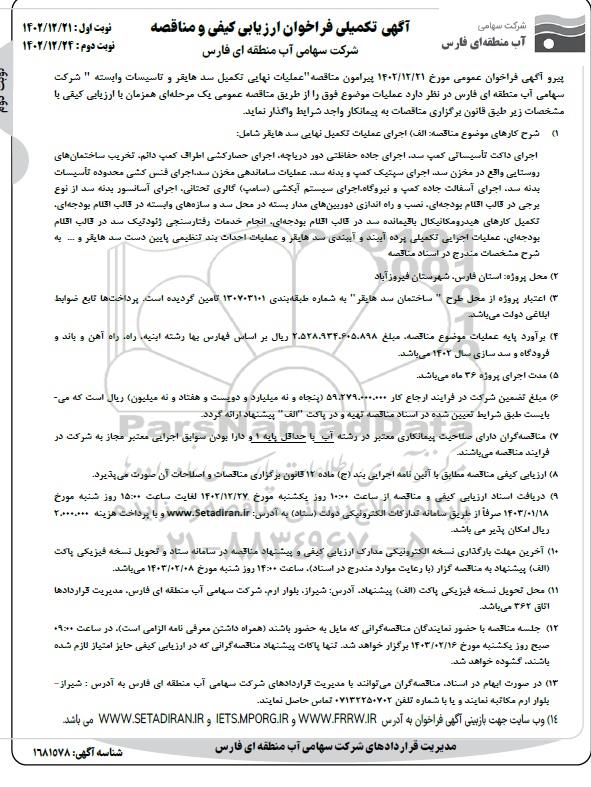 شرکت سهامی
آب منطقه‌ای فارس
آگهی تکمیلی فراخوان ارزیابی کیفی و مناقصه
شرکت سهامی آب منطقه ای فارس
نوبت اول : ۱۴۰۲/۱۲/۲۱
نوبت دوم : ۱۴۰۲/۱۲/۲۴
نوبت دوم
پیرو آگهی فراخوان عمومی مورخ ۱۴۰۲/۱۲/۲۱ پیرامون مناقصه"عملیات نهایی تکمیل سد هایقر و تاسیسات وابسته " شرکت
سهامی آب منطقه ای فارس در نظر دارد عملیات موضوع فوق را از طریق مناقصه عمومی یک مرحله‌ای همزمان با ارزیابی کیفی با
مشخصات زیر طبق قانون برگزاری مناقصات به پیمانکار واجد شرایط واگذار نماید.
۱) شرح کارهای موضوع مناقصه: الف) اجرای عملیات تکمیل نهایی سد هایقر شامل:
اجرای داکت تأسیساتی کمپ سد، اجرای جاده حفاظتی دور دریاچه، اجرای حصارکشی اطراف کمپ دائم، تخریب ساختمان‌های
روستایی واقع در مخزن سد، اجرای سپتیک کمپ و بدنه سد، عملیات ساماندهی مخزن سد،اجرای فنس کشی محدوده تأسیسات
بدنه سد، اجرای آسفالت جاده کمپ و نیروگاه،اجرای سیستم آبکشی (سامپ) گالری تحتانی، اجرای آسانسور بدنه سد از نوع
برجی در قالب اقلام بودجه‌ای، نصب و راه اندازی دوربین‌های مدار بسته در محل سد و سازه‌های وابسته در قالب اقلام بودجه‌ای،
تکمیل کارهای هیدرومکانیکال باقیمانده سد در قالب اقلام بودجه‌ای، انجام خدمات رفتارسنجی ژئودتیک سد در قالب اقلام
بودجه‌ای، عملیات اجرایی تکمیلی پرده آببند و آببندی سد هایقر و عملیات احداث بند تنظیمی پایین دست سد هایقر و ... به
شرح مشخصات مندرج در اسناد مناقصه
۲) محل پروژه: استان فارس، شهرستان فیروزآباد
۳) اعتبار پروژه از محل طرح " ساختمان سد هایقر" به شماره طبقه‌بندی ۱۳۰۷۰۳۱۰۱ تامین گردیده است. پرداخت‌ها تابع ضوابط
ابلاغی دولت می‌باشد.
۴) برآورد پایه عملیات موضوع مناقصه، مبلغ ۲.۵۲۸.۹۳۴.۶۰۵.۸۹۸ ریال بر اساس فهارس بها رشته ابنیه، راه، راه آهن و باند و
فرودگاه و سد سازی سال ۱۴۰۲ می‌باشد.
۵) مدت اجرای پروژه ۳۶ ماه می‌باشد.
۶) مبلغ تضمین شرکت در فرایند ارجاع کار ۵۹.۲۷۹.۰۰۰.۰۰۰ (پنجاه و نه میلیارد و دویست و هفتاد و نه میلیون) ریال است که می-
بایست طبق شرایط تعیین شده در اسناد مناقصه تهیه و در پاکت "الف" پیشنهاد ارائه گردد.
۷) مناقصه‌گران دارای صلاحیت پیمانکاری معتبر در رشته آب با حداقل پایه ۱ و دارا بودن سوابق اجرایی معتبر مجاز به شرکت در
فرایند مناقصه می‌باشند.
۸) ارزیابی کیفی مناقصه مطابق با آئین نامه اجرایی بند (ج) ماده ۱۲ قانون برگزاری مناقصات و اصلاحات آن صورت می‌پذیرد.
۹) دریافت اسناد ارزیابی کیفی و مناقصه از ساعت ۱۰:۰۰ روز یکشنبه مورخ ۱۴۰۲/۱۲/۲۷ لغایت ساعت ۱۵:۰۰ روز شنبه مورخ
۱۴۰۳/۰۱/۱۸ صرفاً از طریق سامانه تدارکات الکترونیکی دولت (ستاد) به آدرس: www.Setadiran.ir و با پرداخت هزینه ۲.۰۰۰.۰۰۰
ریال امکان پذیر می باشد.
۱۰) آخرین مهلت بارگذاری نسخه الکترونیکی مدارک ارزیابی کیفی و پیشنهاد مناقصه در سامانه ستاد و تحویل نسخه فیزیکی پاکت
(الف) پیشنهاد به مناقصه گزار (با رعایت موارد مندرج در اسناد)، ساعت ۱۴:۰۰ روز شنبه مورخ ۱۴۰۳/۰۲/۰۸ می‌باشد.
۱۱) محل تحویل نسخه فیزیکی پاکت (الف) پیشنهاد، آدرس: شیراز، بلوار ارم، شرکت سهامی آب منطقه ای فارس، مدیریت قراردادها
اتاق ۳۶۲ می‌باشد.
۱۲) جلسه مناقصه با حضور نمایندگان مناقصه‌گرانی که مایل به حضور باشند (همراه داشتن معرفی نامه الزامی است)، در ساعت ۰۹:۰۰
صبح روز یکشنبه مورخ ۱۴۰۳/۰۲/۱۶ برگزار خواهد شد. تنها پاکات پیشنهاد مناقصه‌گرانی که در ارزیابی کیفی حایز امتیاز لازم شده
باشند، گشوده خواهد شد.
۱۳) در صورت ابهام در اسناد، مناقصه‌گران می‌توانند با مدیریت قراردادهای شرکت سهامی آب منطقه ای فارس به آدرس : شیراز–
بلوار ارم مکاتبه نمایند و یا با شماره تلفن ۰۷۱۳۲۲۵۰۷۰۲ تماس حاصل نمایند.
۱۴) وب سایت جهت بازبینی آگهی فراخوان به آدرس WWW.FRRW.IR و IETS.MPORG.IR و WWW.SETADIRAN.IR می باشد.
مدیریت قراردادهای شرکت سهامی آب منطقه ای فارس
شناسه آگهی: ۱۶۸۱۵۷۸
ParsNamadData
۰۲۱-۸۸۳۴۹۶۷۰-۵